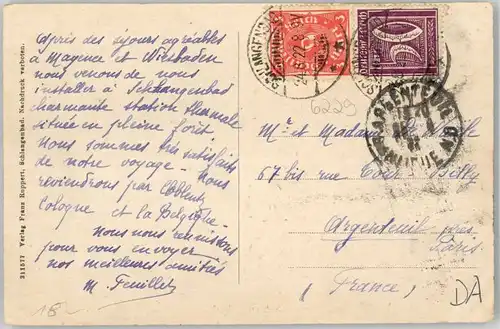 Après des séjours agréables
à Mayence et Wiesbaden
nous venons de nous
installer à Schlangenbad
charmante station thermale
située en pleine forêt.
Nous sommes très satisfaits
de notre voyage. Nous
reviendrons par Coblentz
Cologne et la Belgique.
Nous nous réunissons
pour vous envoyer
nos meilleures amitiés
M. Feuillet
311577 Verlag Franz Ruppert, Schlangenbad. Nachdruck verboten.
18
6229
Mr et Madame
67 bis rue Tour Billy
Argenteuil près
Paris
(France)
DA